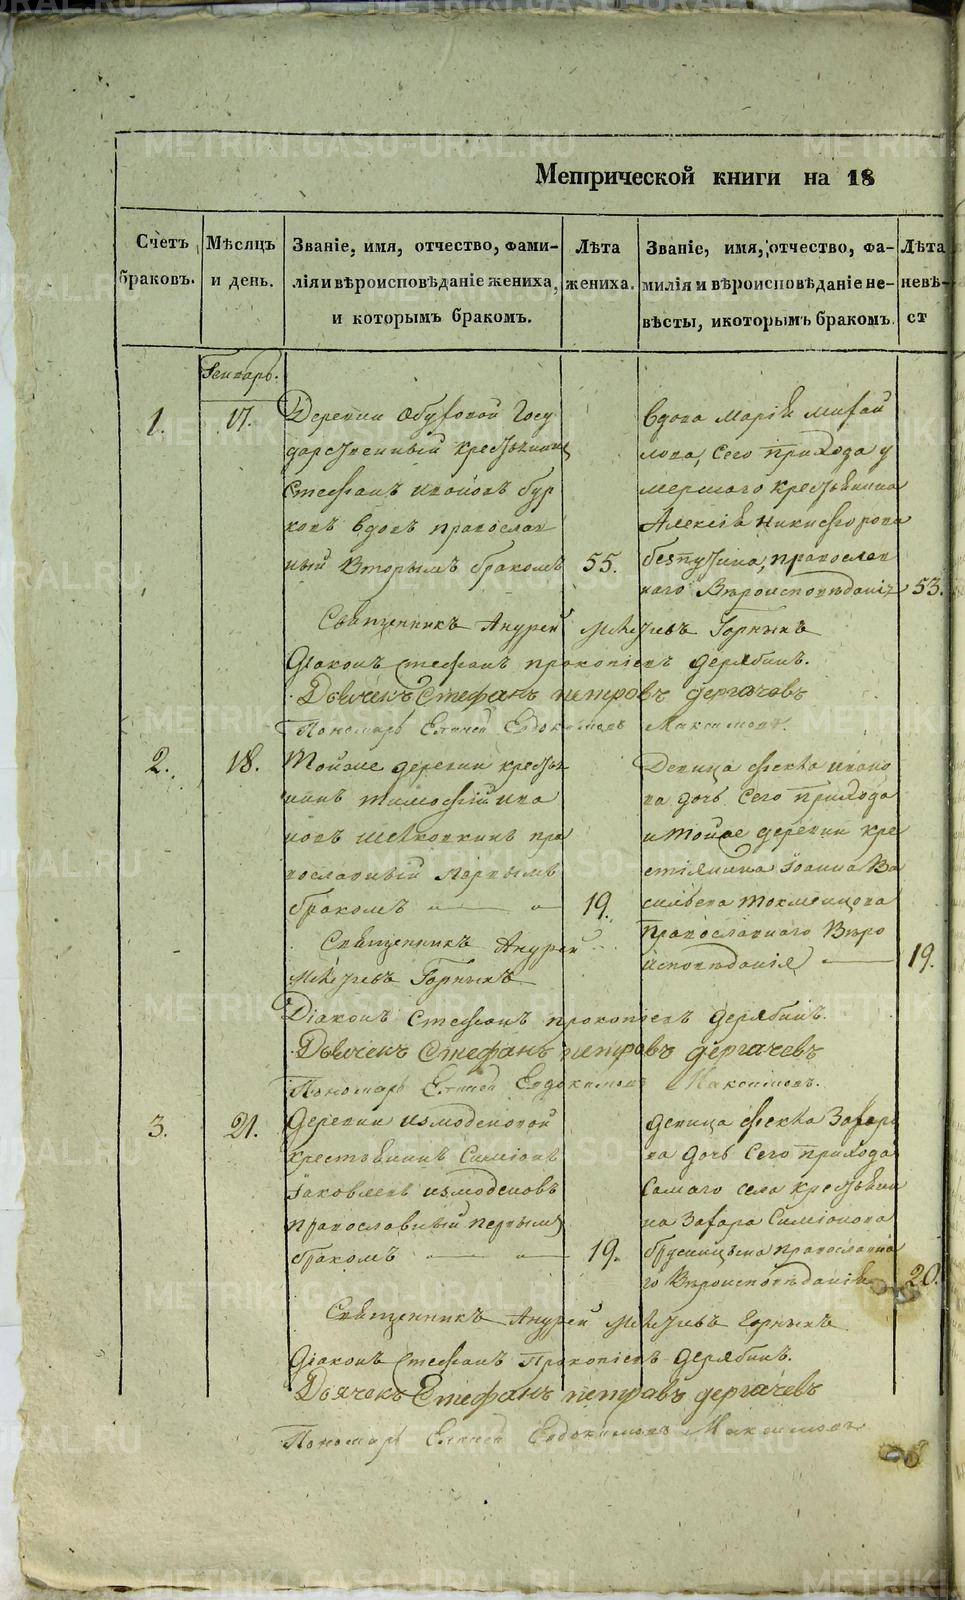 Метрической книги на 18
Счетъ браковъ.
Мѣсяцъ и день.
Званіе, имя, отчество, фами-
лія и вѣроисповѣданіе жениха,
и которымъ бракомъ.
Лѣта жениха.
Званіе, имя, отчество, фа-
милія и вѣроисповѣданіе не-
вѣсты, и которымъ бракомъ.
Лѣта невѣ-
ст
Генварь.
1.
17.
Деревни Обуховой Госу
дарственный крестьянинъ
Стефанъ Ивановъ бур
ковъ вдовъ православ
ный Вторымъ бракомъ
55.
Вдова Марія Михай
лова, сего прихода у
мершаго крестьянина
Алексія Никифорова
православ
наго Вѣроисповѣданія
53.
Священникъ Андрей Горныхъ
Діаконъ Стефанъ Прокопіевъ Дерябинъ.
Дьячекъ Стефанъ петровъ дергачевъ
Пономарь Евдокимовъ Максимовъ.
2.
18.
Тойже деревни кресть
нинъ тимофій ива
новъ пра
вославный Первымъ
бракомъ
19.
Девица фекла ивано
ва дочь Сего Прихода
и тойже деревни кре
стіянина Іоанна Ва
сильева токменцова
Православнаго Вѣро
исповѣданія
19.
Священникъ Андрей
Горныхъ
Діаконъ Стефанъ Прокопіевъ Дерябинъ.
Дьячекъ Стефанъ петровъ дергачевъ
Пономарь Евдокимовъ Максимовъ.
3.
21.
Деревни измоденовой
крестьянинъ Симіонъ
Іаковлевъ измоденовъ
Православный первымъ
бракомъ
19.
девица фекла Захаро
ва дочь Сего прихода
Самаго села крестьяни
на Захара Симіонова
брусницына православна
го Вѣроисповѣданія
20.
Священникъ Андрей Горныхъ
Діаконъ Стефанъ Прокопіевъ Дерябинъ.
Дьячекъ Стефанъ петровъ дергачевъ
Пономарь Евдокимовъ Максимовъ
METRIKI.GASO-URAL.RU